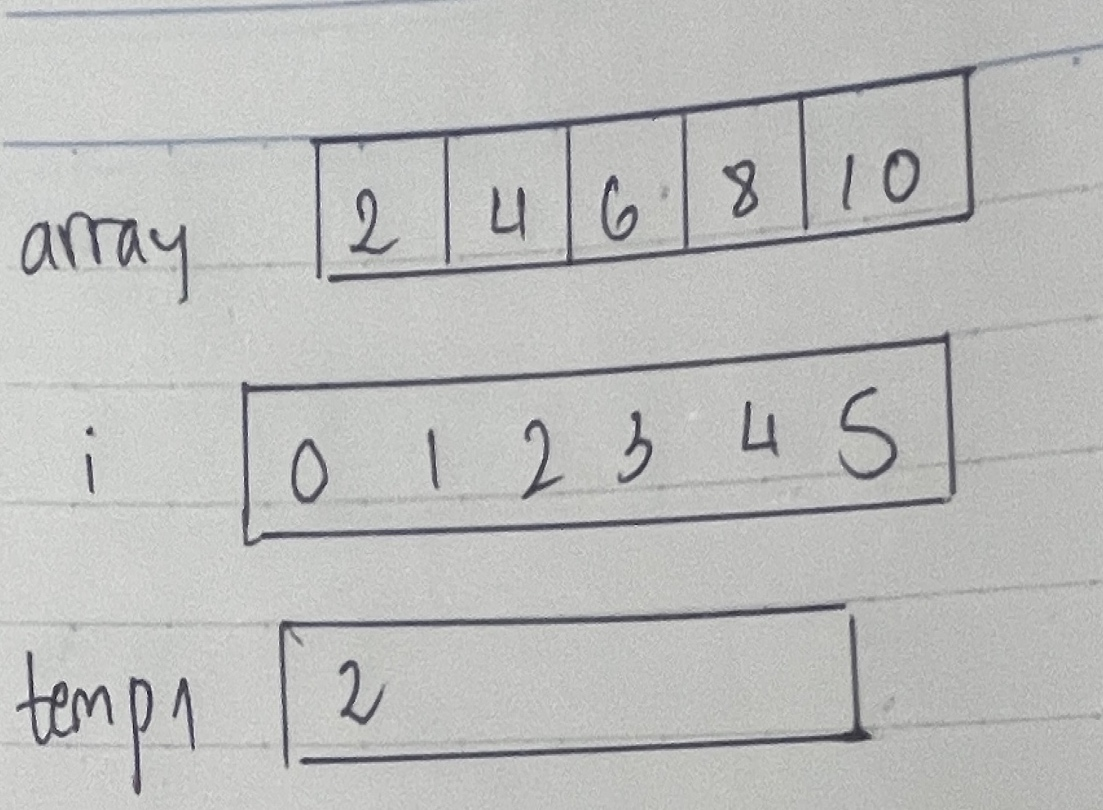 array 2 4 6 8 10
i 0 1 2 3 4 5
temp1 2